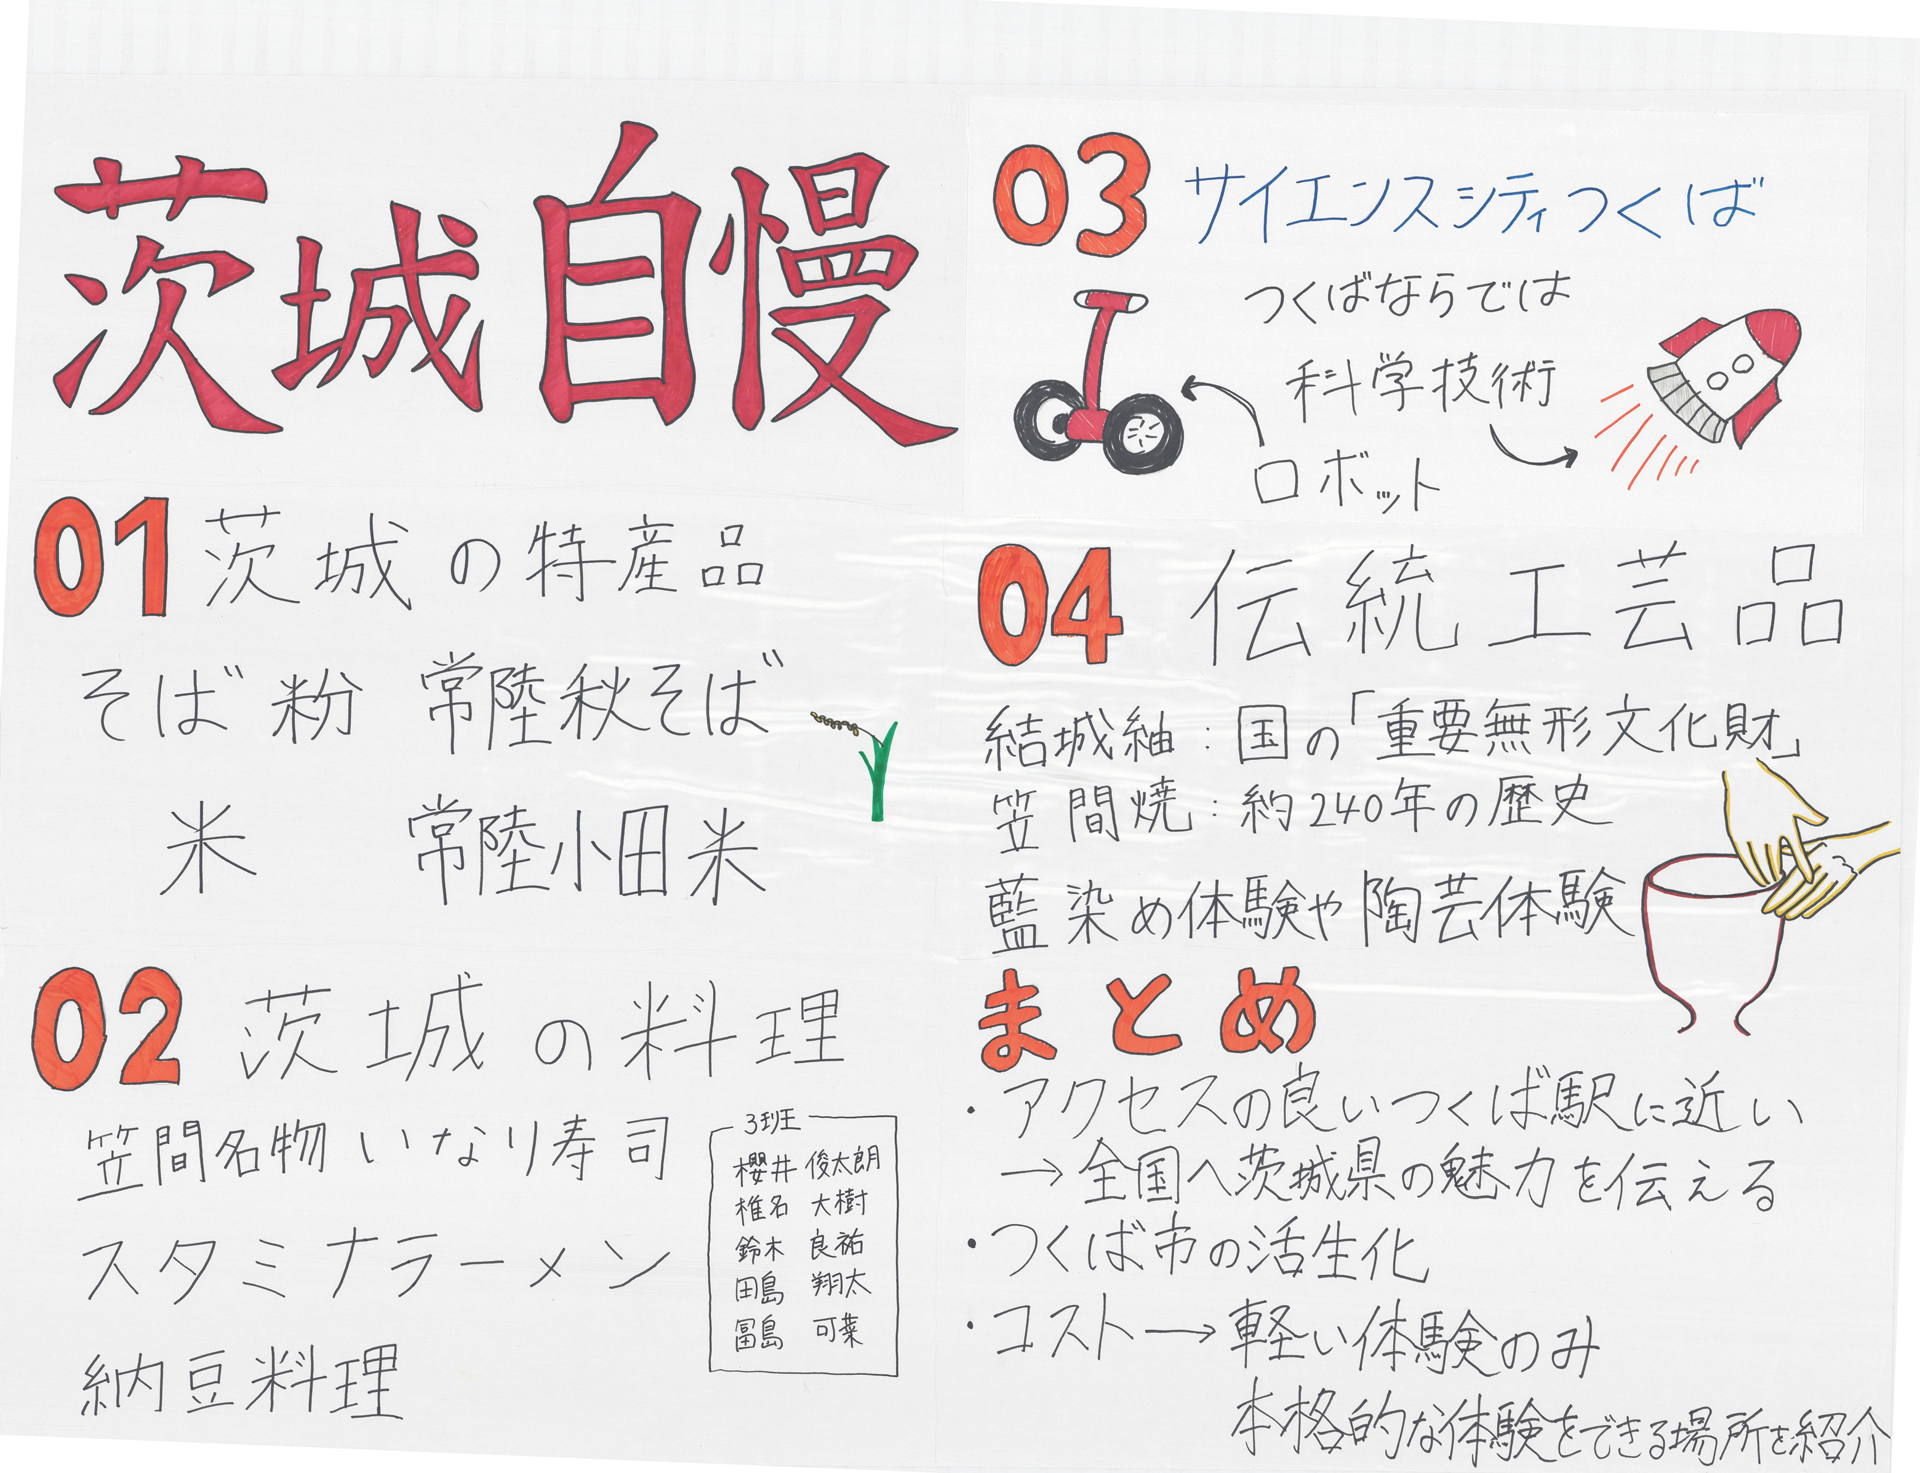 茨城自慢
01 茨城の特産品
そば粉 常陸秋そば
米 常陸小田米
02 茨城の料理
笠間名物いなり寿司
スタミナラーメン
納豆料理
3班
櫻井 俊太朗
椎名 大樹
鈴木 良祐
田島 翔太
冨島 可菜
03 サイエンスシティつくば
つくばならでは
科学技術
ロボット
04 伝統工芸品
結城紬：国の「重要無形文化財」
笠間焼：約240年の歴史
藍染め体験や陶芸体験
まとめ
・アクセスの良いつくば駅に近い
→全国へ茨城県の魅力を伝える
・つくば市の活生化
・コスト→軽い体験のみ
本格的な体験をできる場所を紹介